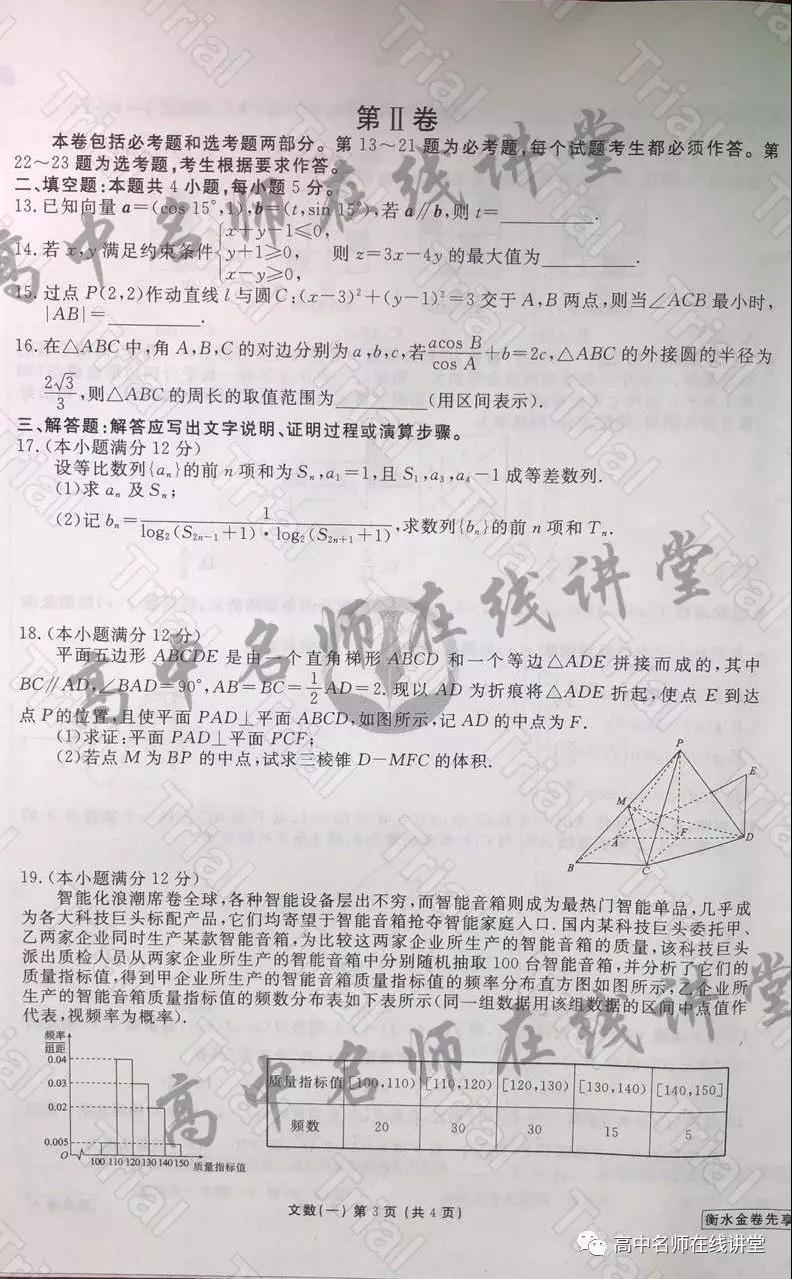 第Ⅱ卷
本卷包括必考题和选考题两部分。第13～21题为必考题,每个试题考生都必须作答。第
22～23题为选考题,考生根据要求作答。
二、填空题:本题共4小题,每小题5分。
13.已知向量a=(cos 15°,1),b=(t,sin 15°),若a∥b,则t=________.
14.若x,y满足约束条件{x+y-1≤0, y+1≥0, x-y≥0, 则z=3x-4y的最大值为________.
15.过点P(2,2)作动直线l与圆C:(x-3)²+(y-1)²=3交于A,B两点,则当∠ACB最小时,
|AB|=________.
16.在△ABC中,角A,B,C的对边分别为a,b,c,若acos B/cos A+b=2c,△ABC的外接圆的半径为
2√3/3,则△ABC的周长的取值范围为________(用区间表示).
三、解答题:解答应写出文字说明、证明过程或演算步骤。
17.(本小题满分12分)
设等比数列{aₙ}的前n项和为Sₙ,a₁=1,且S₁,a₃,a₄-1成等差数列.
(1)求aₙ及Sₙ;
(2)记bₙ=1/(log₂(S₂ₙ₋₁+1)·log₂(S₂ₙ₊₁+1)),求数列{bₙ}的前n项和Tₙ.
18.(本小题满分12分)
平面五边形ABCDE是由一个直角梯形ABCD和一个等边△ADE拼接而成的,其中
BC∥AD,∠BAD=90°,AB=BC=1/2AD=2.现以AD为折痕将△ADE折起,使点E到达
点P的位置,且使平面PAD⊥平面ABCD,如图所示,记AD的中点为F.
(1)求证:平面PAD⊥平面PCF;
(2)若点M为BP的中点,试求三棱锥D-MFC的体积.
P
E
M
A
F
D
B
C
19.(本小题满分12分)
智能化浪潮席卷全球,各种智能设备层出不穷,而智能音箱则成为最热门智能单品,几乎成
为各大科技巨头标配产品,它们均寄望于智能音箱抢夺智能家庭入口.国内某科技巨头委托甲、
乙两家企业同时生产某款智能音箱,为比较这两家企业所生产的智能音箱的质量,该科技巨头
派出质检人员从两家企业所生产的智能音箱中分别随机抽取100台智能音箱,并分析了它们的
质量指标值,得到甲企业所生产的智能音箱质量指标值的频率分布直方图如图所示,乙企业所
生产的智能音箱质量指标值的频数分布表如下表所示(同一组数据用该组数据的区间中点值作
代表,视频率为概率).
频率/组距
0.04
0.03
0.02
0.005
O 100 110 120 130 140 150 质量指标值
质量指标值 [100,110) [110,120) [120,130) [130,140) [140,150]
频数 20 30 30 15 5
文数(一) 第3页(共4页)
衡水金卷先享
高中名师在线讲堂
高中名师在线讲堂
高中名师在线讲堂
高中名师在线讲堂
Trial